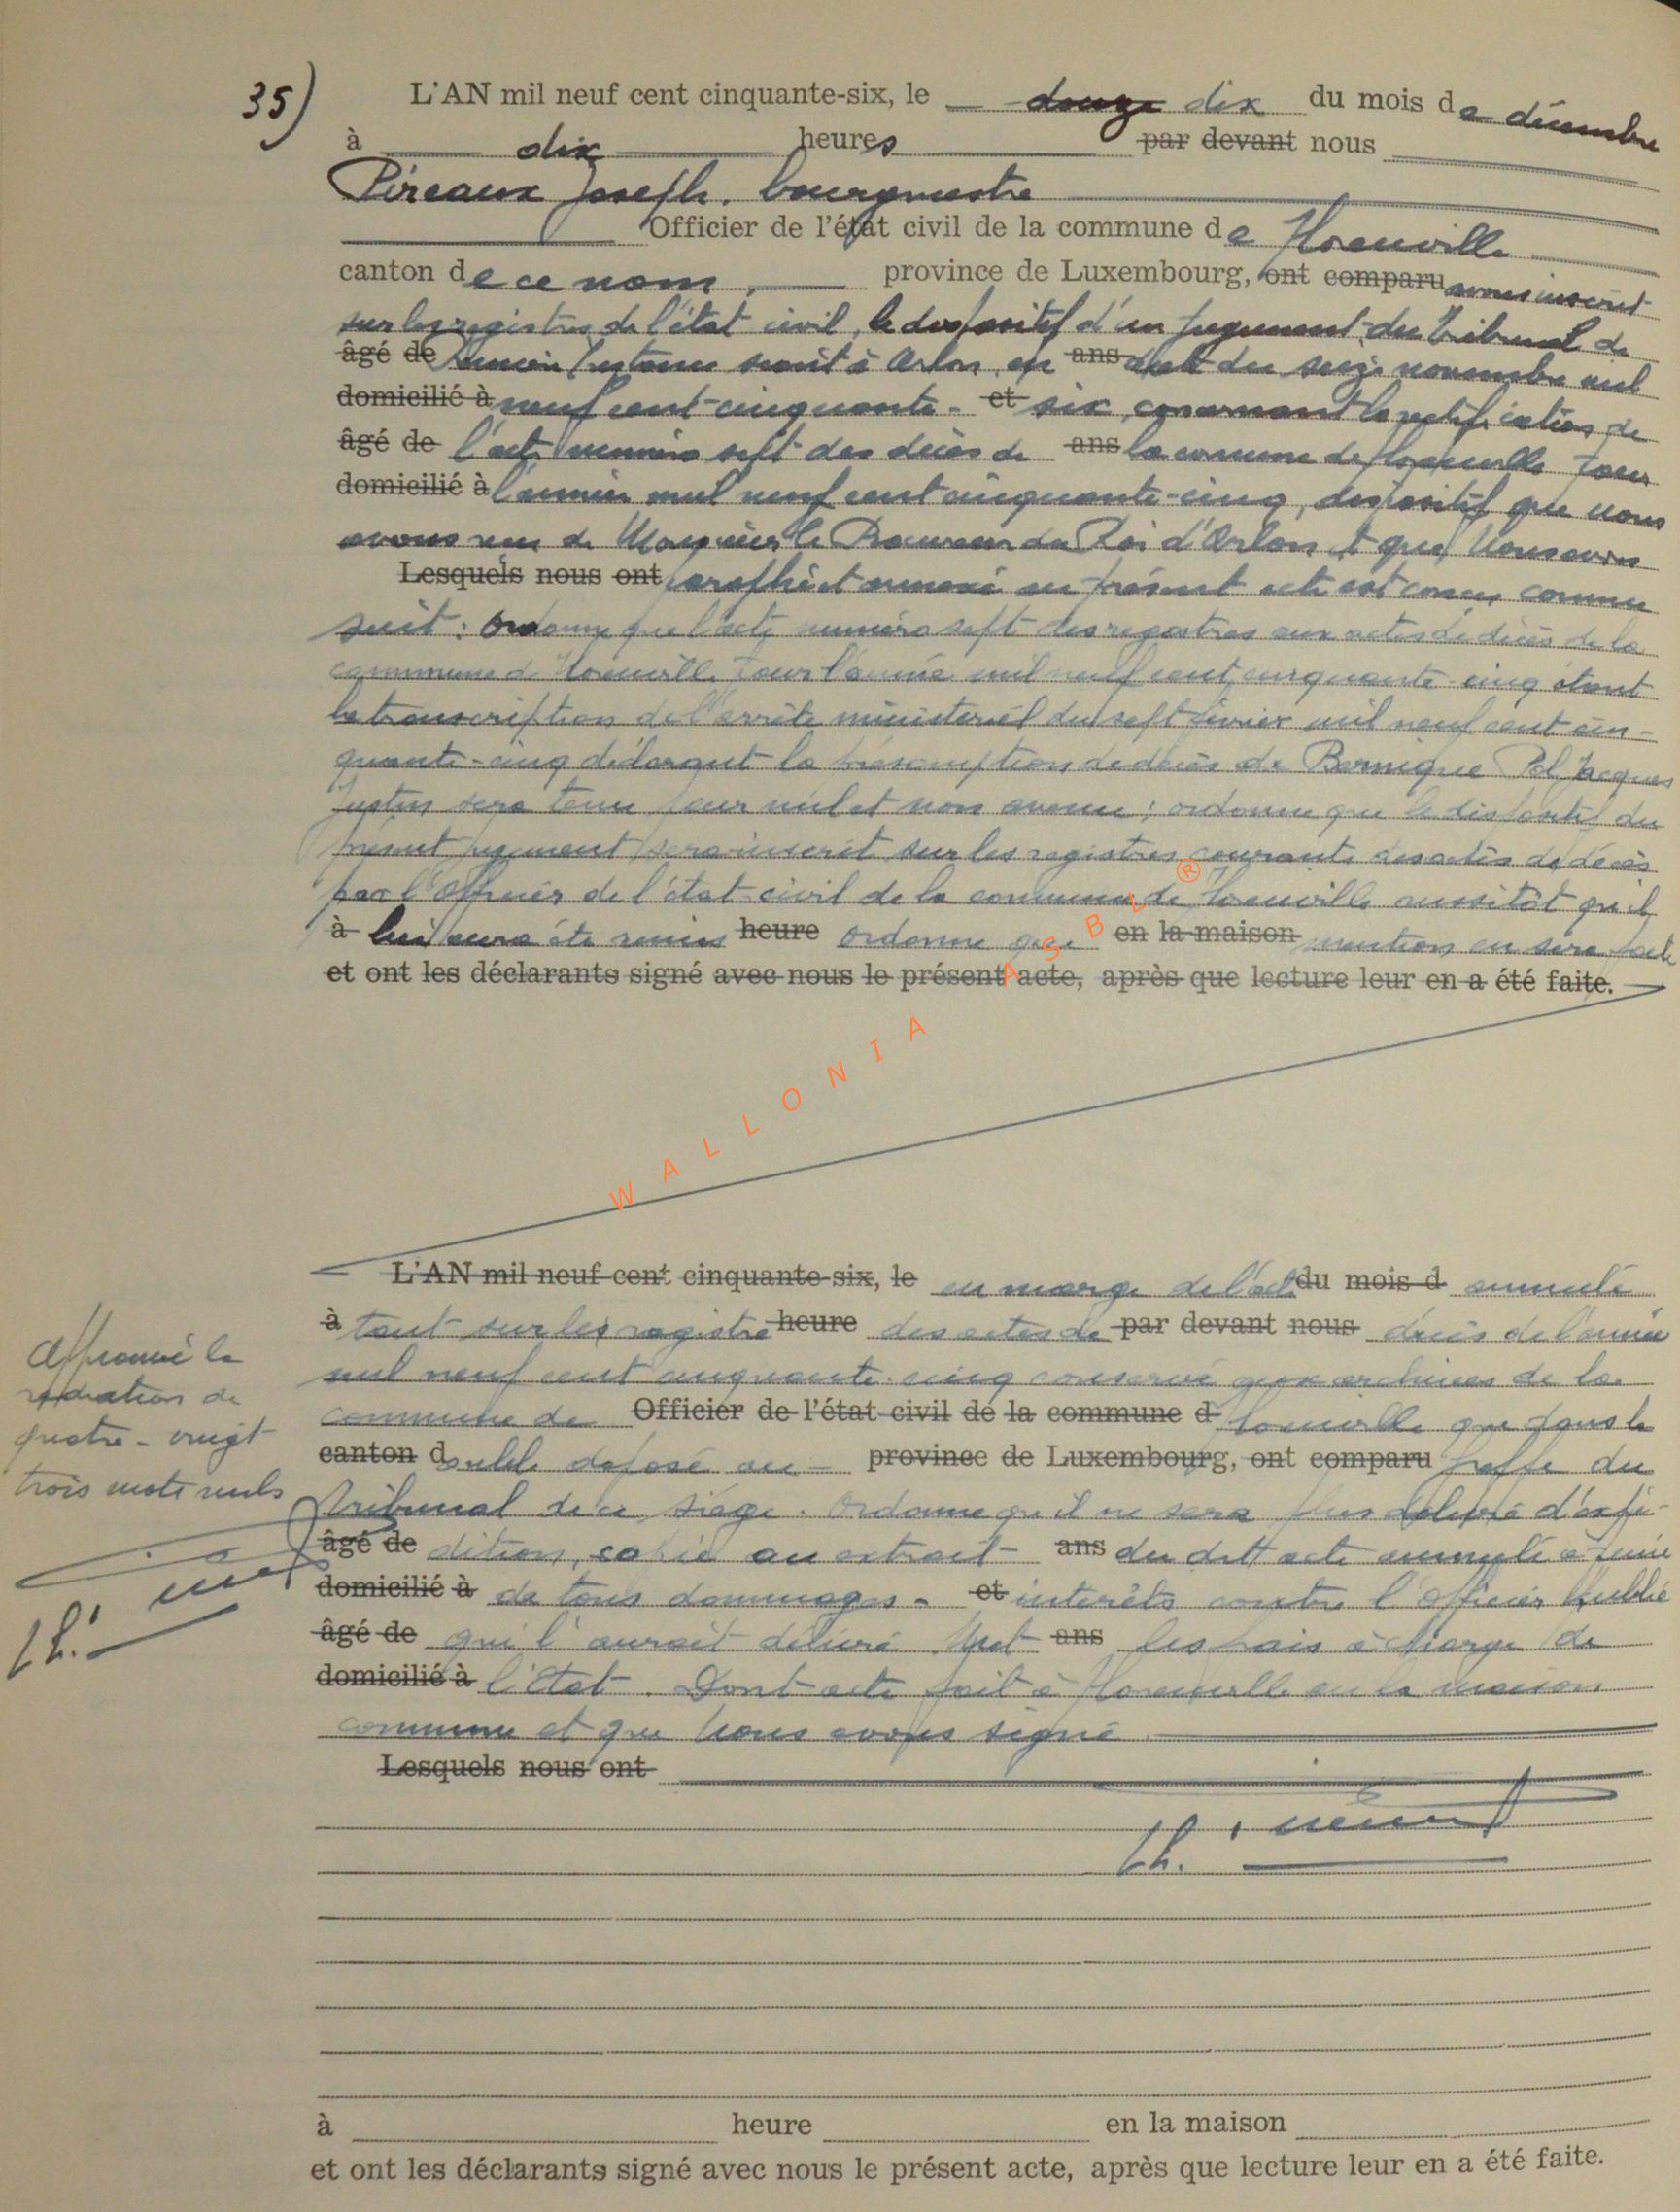 35)
L'AN mil neuf cent cinquante-six, le douze dix du mois de décembre
à dix heures par devant nous
Pireaux Joseph, bourgmestre
Officier de l'état civil de la commune de Florenville
canton de ce nom, province de Luxembourg, ont comparu avons inscrit
sur les registres de l'état civil, le dispositif d'un jugement du Tribunal de
âgé de Première Instance séant à Arlon, en ans date du seize novembre mil
domicilié à neuf cent-cinquante- et six, concernant la rectification de
âgé de l'acte numéro sept des décès de ans la commune de Florenville pour
domicilié à l'année mil neuf cent cinquante-cinq, dispositif que nous
avons reçu de Monsieur le Procureur du Roi d'Arlon et que Nous avons
Lesquels nous ont paraphé et annexé au présent acte est conçu comme
suit : Ordonne que l'acte numéro sept des registres aux actes de décès de la
commune de Florenville pour l'année mil neuf cent cinquante-cinq étant
la transcription de l'arrêté ministériel du sept février mil neuf cent cin-
quante-cinq déclarant la présomption de décès de Bernique Pol Jacques
Justin sera tenu pour nul et non avenu ; ordonne que le dispositif du
présent jugement sera inscrit sur les registres courants des actes de décès
par l'Officier de l'état-civil de la commune de Florenville aussitôt qu'il
à lui aura été remis heure Ordonne que en la maison mention en sera faite
et ont les déclarants signé avec nous le présent acte, après que lecture leur en a été faite.
WALLONIA ASBL ®
L'AN mil neuf cent cinquante-six, le en marge de l'acte du mois d annulé
à tant sur les registre heure des actes de par devant nous décès de l'année
mil neuf cent cinquante-cinq conservé aux archives de la
commune de Officier de l'état civil de la commune d Florenville que dans le
canton double déposé au province de Luxembourg, ont comparu greffe du
Tribunal de ce siège. Ordonne qu'il ne sera plus délivré d'expé-
âgé de dition, copie ou extrait ans du dit acte annulé à peine
domicilié à de tous dommages- et intérêts contre l'Officier Public
âgé de qui l'aurait délivré. Met ans les frais à charge de
domicilié à l'Etat. Dont acte fait à Florenville en la maison
commune et que Nous avons signé.
Lesquels nous ont
Approuvé la
radiation de
quatre-vingt
trois mots nuls
à heure en la maison
et ont les déclarants signé avec nous le présent acte, après que lecture leur en a été faite.